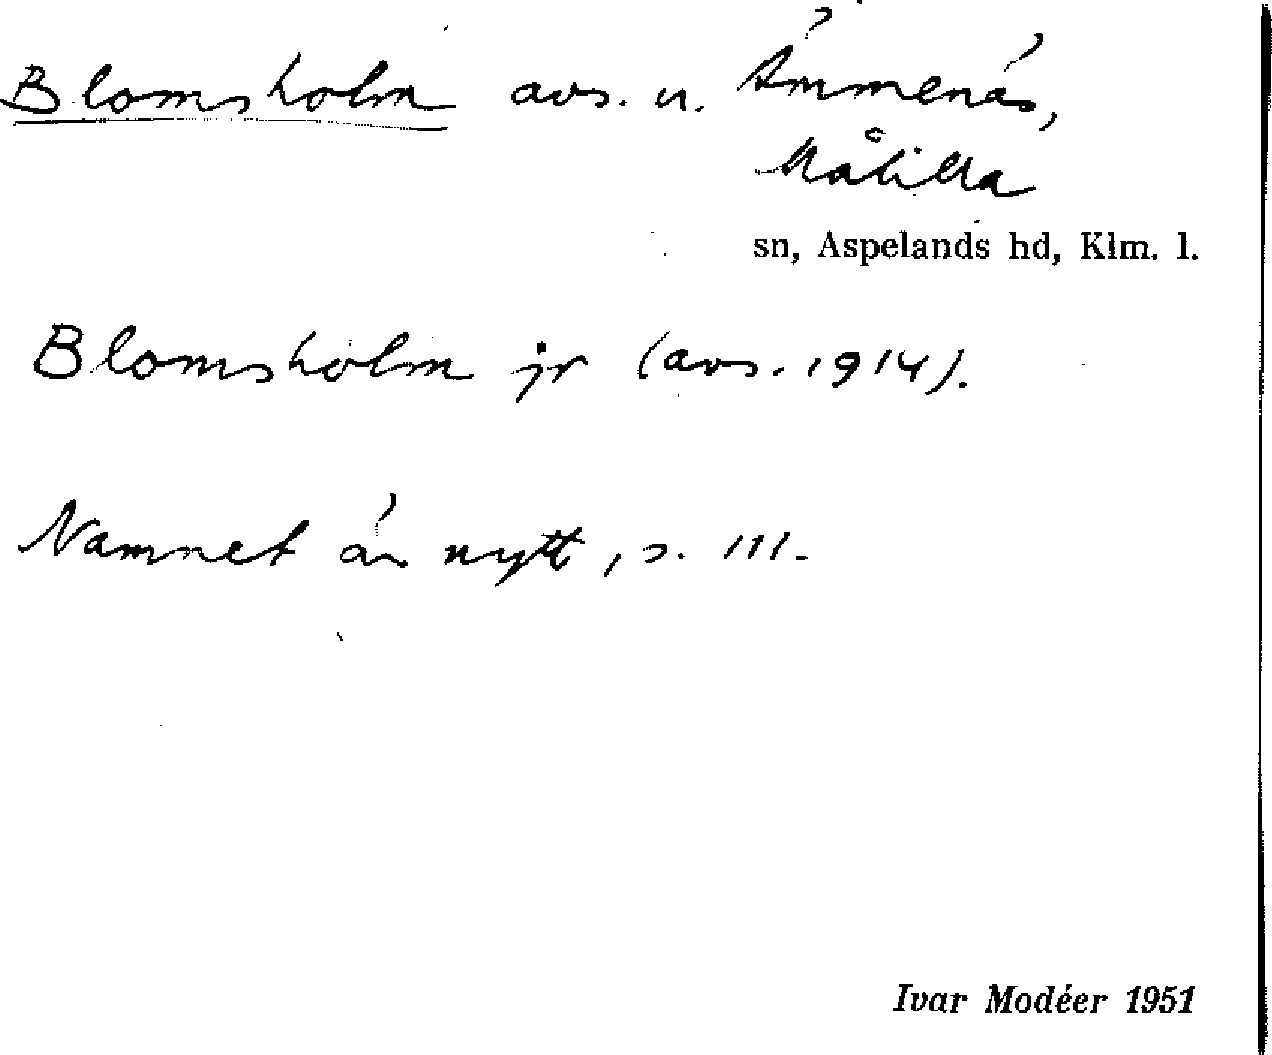 Blomsholm avs. u. Ämmenäs,
Målilla
sn, Aspelands hd, Klm. l.
Blomsholm jr (avs. 1914).
Namnet är nytt, s. III.
Ivar Modéer 1951